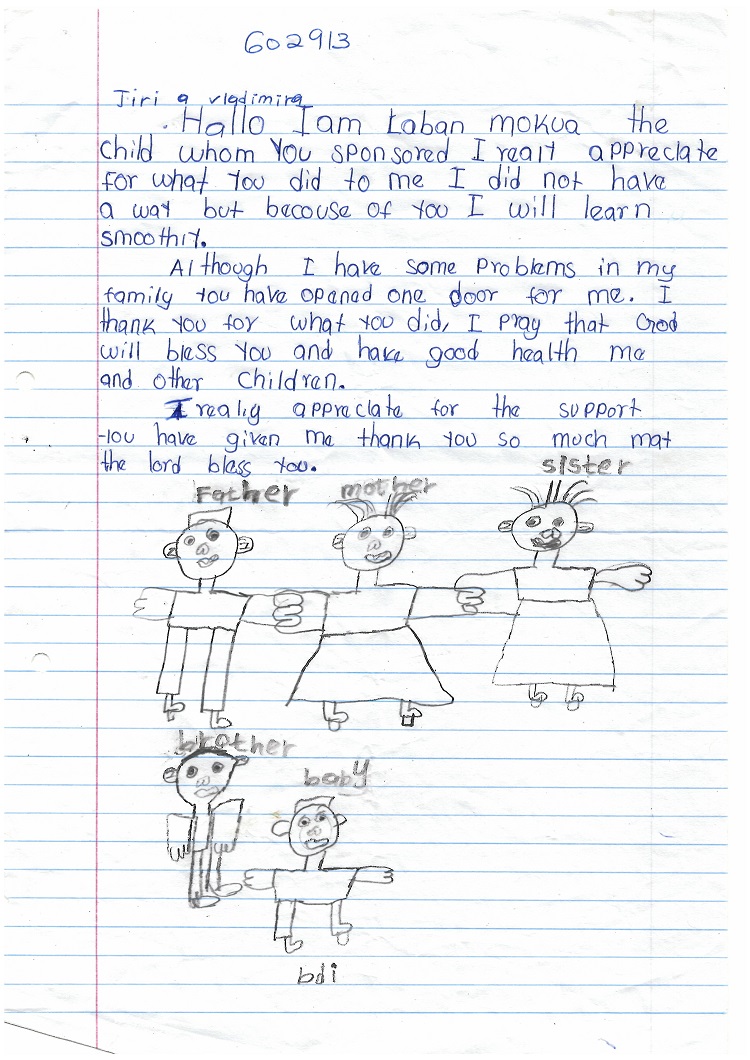 602913
Jiri a vladimira
. Hallo I am Laban mokua the
child whom you sponsored I realy appreclate
for what you did to me I did not have
a way but becouse of you I will learn
smoothly.
Although I have some problems in my
family you have opened one door for me. I
thank you for what you did, I pray that God
will bless you and have good health me
and other children.
I realiy appreclate for the support
you have given me thank you so much mat
the lord bless you.
Father mother sister
brother
baby
bdi